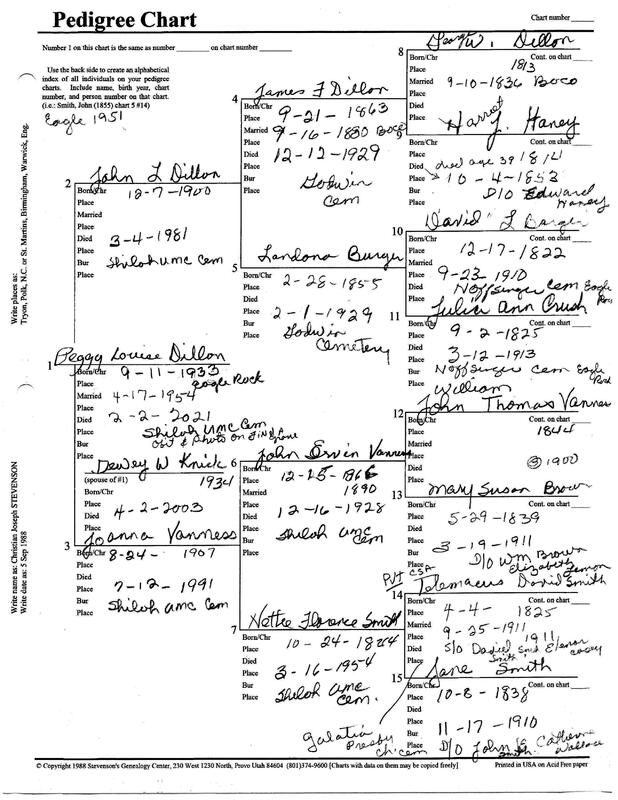 Pedigree Chart
Chart number
Number 1 on this chart is the same as number on chart number
Use the back side to create an alphabetical
index of all individuals on your pedigree
charts. Include name, birth year, chart
number, and person number on that chart.
(i.e.: Smith, John (1855) chart 5 #14)
Eagle 1951
Write places as:
Tryon, Polk, N.C. or St. Martins, Birmingham, Warwick, Eng.
Write name as: Christian Joseph STEVENSON
Write date as: 5 Sep 1988
1
Peggy Louise Dillon
Born/Chr 9-11-1933
Place Eagle Rock
Married 4-17-1954
Place
Died 2-2-2021
Place Shiloh UMC Cem
Bur Obit & Photo on Find A Grave
Place
Dewey W Knick
(spouse of #1) 1934
Born/Chr
Place
Died 4-2-2003
Place
2
John L Dillon
Born/Chr 12-7-1900
Place
Married
Place
Died 3-4-1981
Place
Bur Shiloh UMC Cem
Place
3
Joanna Vanness
Born/Chr 8-24-1907
Place
Died 7-12-1991
Place
Bur Shiloh UMC Cem
Place
4
James F Dillon
Born/Chr 9-21-1863
Place
Married 9-16-1880 Boco
Place
Died 12-12-1929
Place
Bur Godwin
Place Cem
5
Landona Burger
Born/Chr 2-28-1855
Place
Died 2-1-1929
Place
Bur Godwin
Place Cemetery
6
John Ervin Vanness
Born/Chr 12-25-1866
Place
Married 1890
Place
Died 12-16-1928
Place
Bur Shiloh UMC
Place Cem
7
Nettie Florence Smith
Born/Chr 10-24-1864
Place
Died 3-16-1954
Place
Bur Shiloh UMC
Place Cem.
8
George W. Dillon
Born/Chr Cont. on chart
Place 1813
Married 9-10-1836 Boco
Place
Died
Place
9
Harriet J. Haney
Born/Chr Cont. on chart
Place died age 39 1814
Died 10-4-1853
Place D/O Edward
Haney
10
David L Barger
Born/Chr Cont. on chart
Place 12-17-1822
Married
Place
Died 9-23-1910
Place Noffsinger Cem Eagle
Rock
11
Julia Ann Crush
Born/Chr Cont. on chart
Place 9-2-1825
Died 3-12-1913
Place Noffsinger Cem Eagle
Rock
12
William
John Thomas Vanness
Born/Chr Cont. on chart
Place 1844
Married
Place
Died 1900
Place
13
Mary Susan Brown
Born/Chr Cont. on chart
Place 5-29-1839
Died 3-19-1911
Place D/O Wm Brown
Elizabeth Lemon
14
PVT CSA
Telemacus David Smith
Born/Chr Cont. on chart
Place 4-4-1825
Married
Place 9-25-1911
Died 1911
Place S/O Daniel Smith Elenor
15
Jane Smith
Born/Chr Cont. on chart
Place 10-8-1838
Died 11-17-1910
Place D/O John Smith & Catherine
Wallace
Galatia
Presby
Ch Cem
© Copyright 1988 Stevenson's Genealogy Center, 230 West 1230 North, Provo Utah 84604 (801)374-9600 [Charts with data on them may be copied freely]
Printed in USA on Acid Free paper